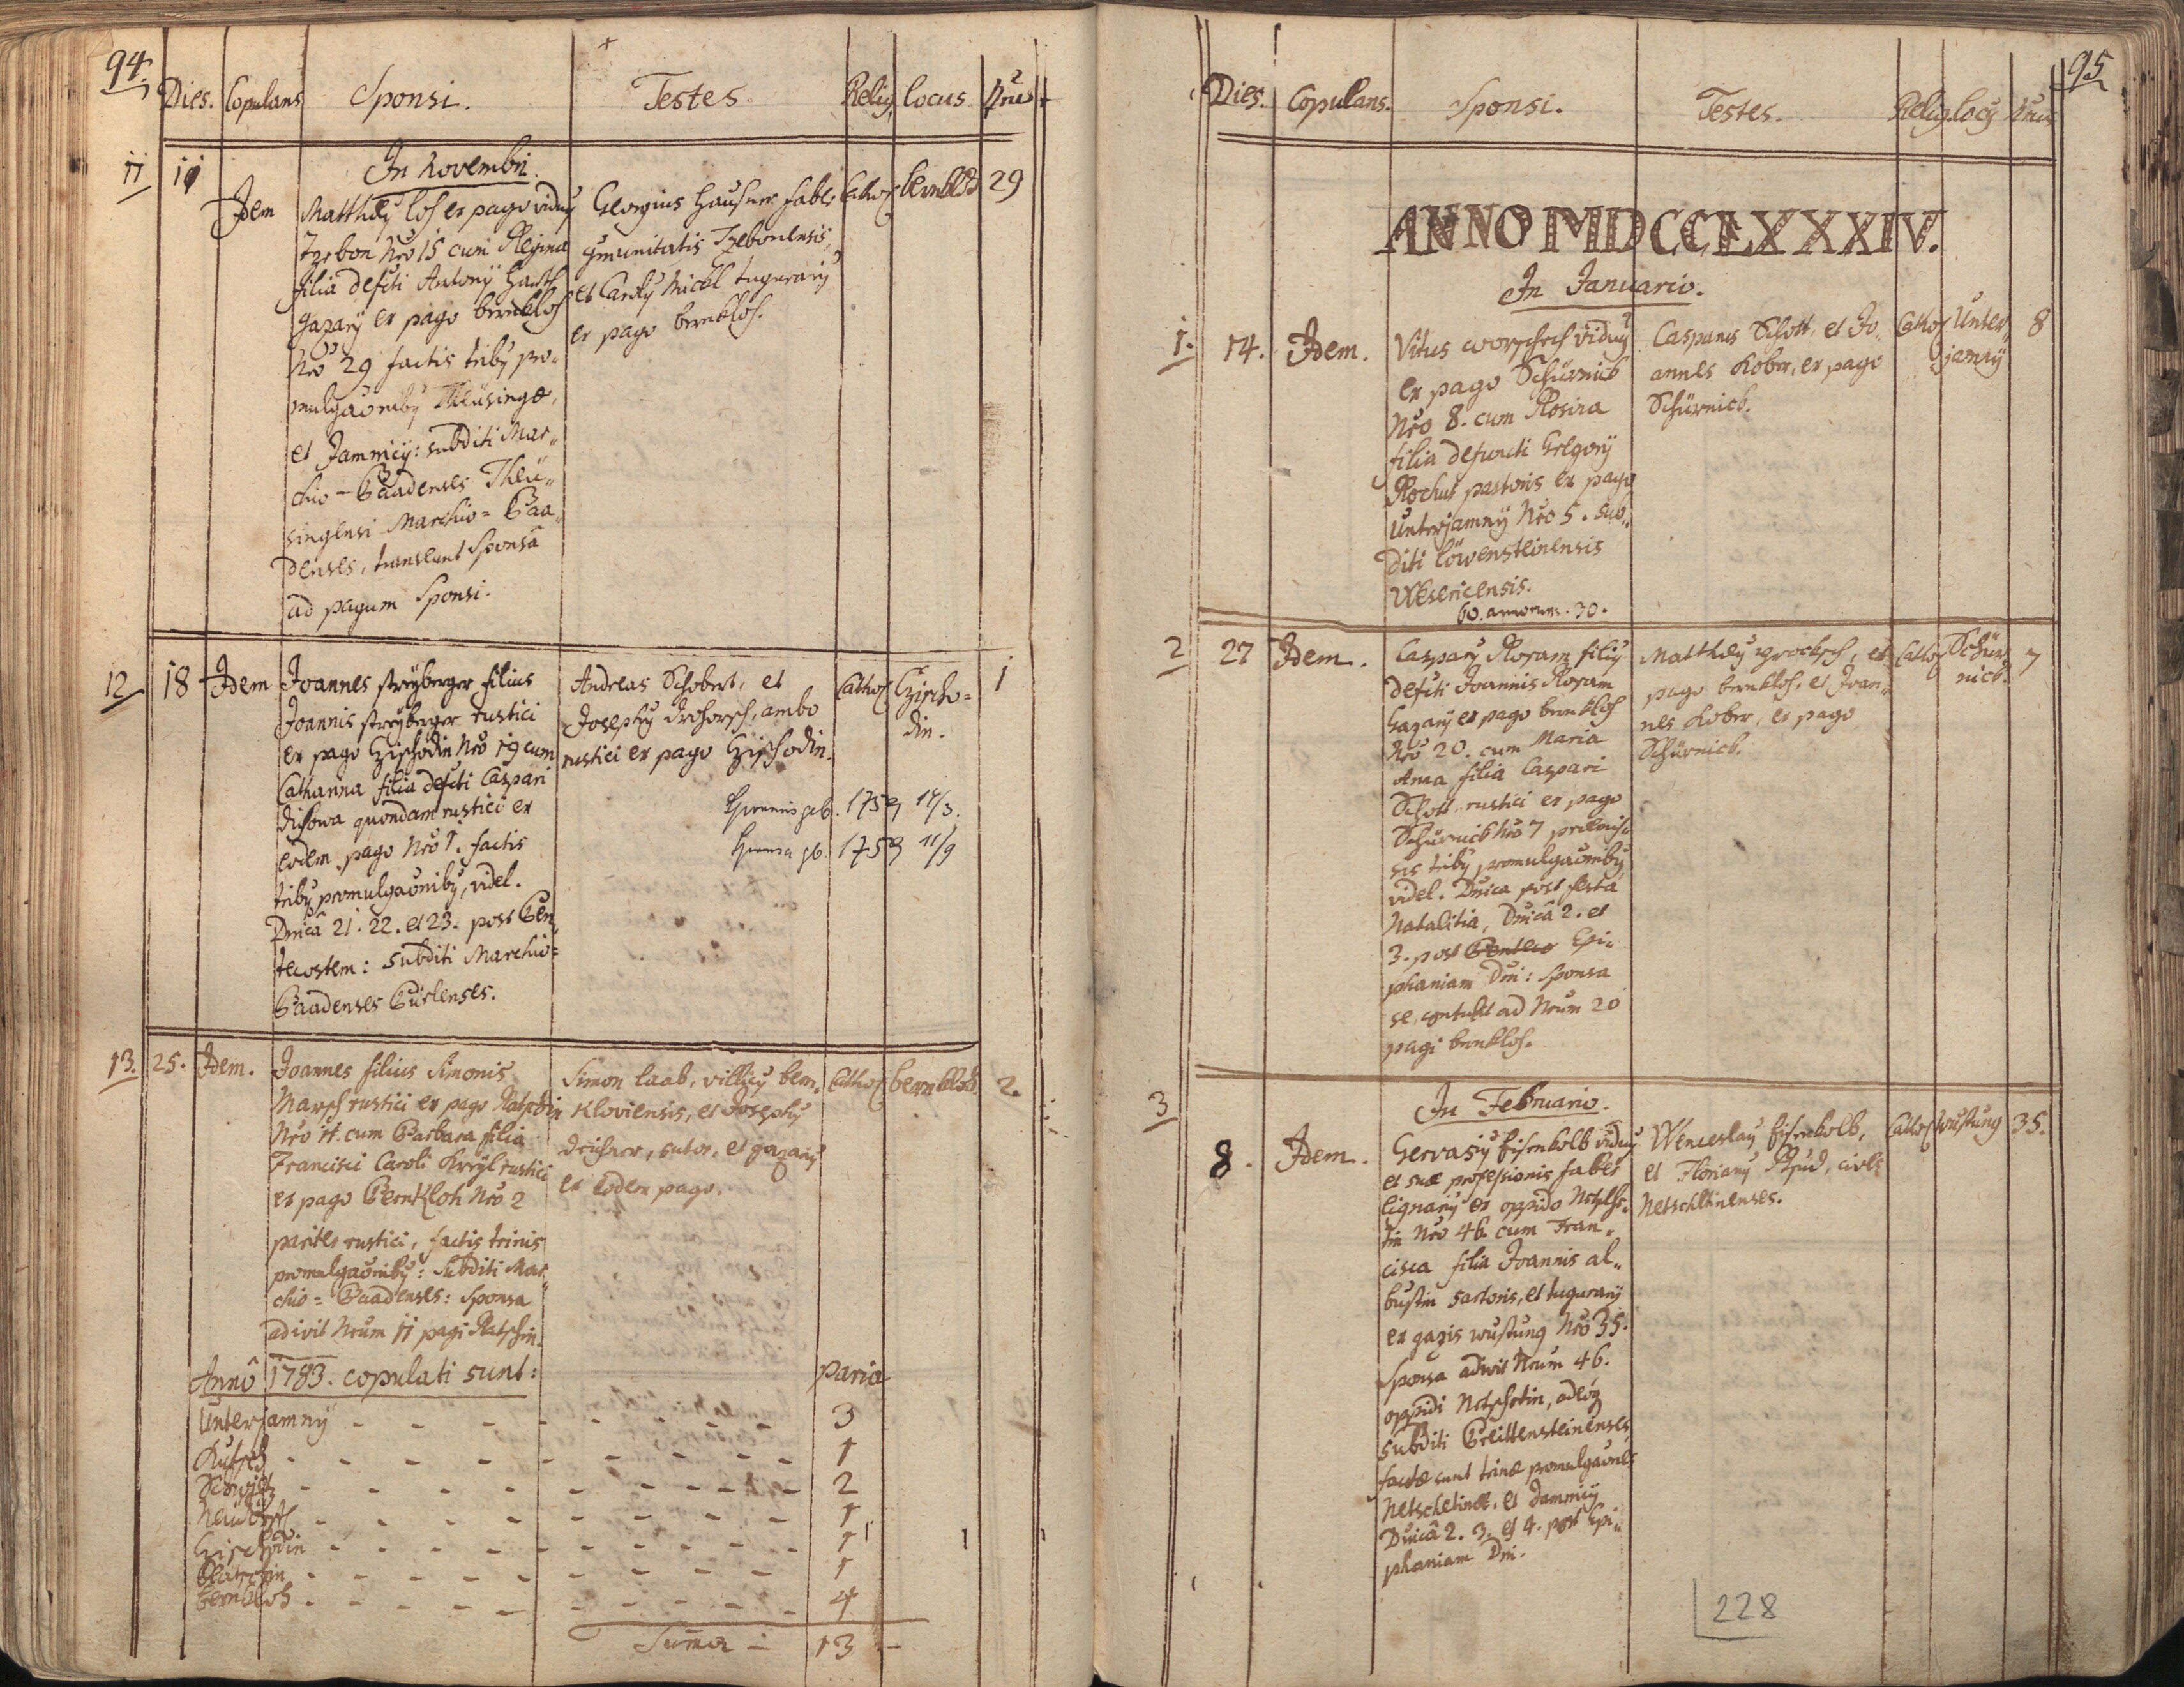 94.
Dies. Copulans Sponsi. Testes. Relig. locus Nrus
In Novembri.
11 10 Idem
Matthæy loh ex pago viduy
Tzebon Nro 15 cum Regina
filia defcti Antony
gazarÿ ex pago bernkloh
Nro 29 factis triby pro„
mulgaõniby Theüsingæ,
et Jamnicÿ: subditi Mar„
chio - Baadenses Theü„
singensi Marchio = Baa„
denses, transeunt Sponsâ
ad pagum Sponsi.
Georgius Hausner fabr
et Caroly Nickl tugurarÿ
ex pago bernkloh.
Cathol bernkloh 29
12 18 Idem
Joannes streÿberger filius
Joannis streÿberger rustici
ex pago Gischodin Nro 19 cum
Catharina filia defcti Caspari
quondam rustici ex
eodem pago Nro 1. factis
triby promulgaõniby, videl.
Dnicâ 21. 22. et 23. post Pen„
tecostem: subditi Marchio=
Baadenses
Andreas Schobert, et
Josephy ambo
rustici ex pago Gischodin.
Cathol Gischo=
din.
1
geb. 1759 14/3.
gb. 1753 11/9
13. 25. Idem.
Joannes filius Simonis
Marsch rustici ex pago Ratschin
Nro 11. cum Barbara filia
Francisci Caroli rustici
ex pago Bernkloh Nro 2
pariter rustici, factis trinis
promulgaõniby: Subditi Mar„
chio = Baadenses: Sponsa
adivit Nrum 11 pagi Ratschin.
Simon laab, villicy bern„
kloviensis, et Josephy
sutor, et gazarÿ
ex eodem pago.
Cathol bernkloh 2.
Annô 1783. copulati sunt: paria
Unterjamnÿ 3
1
2
Neudorf 1
Gischodin 1
Ratschin 1
bernkloh 4
Suma 13
95
Dies. Copulans. Sponsi. Testes. Relig. locy Nrus
ANNO MDCCLXXXIV.
In Januario.
1. 14. Idem.
Vitus worschech viduy
ex pago Schürnick
Nro 8. cum Rosina
filia defuncti Gregorÿ
pastoris ex pago
Unterjamnÿ Nro 5. sub„
diti löwensteinensis
Wesericensis.
60. annorum. 30.
Casparus Schott, et Jo„
annes Kober, ex pago
Schürnick.
Cathol Unter„
jamnÿ
8
2 27 Idem.
Caspary Rosam filiy
defcti Joannis Rosam
gazarÿ ex pago bernkloh
Nro 20. cum Maria
Anna filia Caspari
Schott rustici ex pago
Schürnick Nro 7
triby promulgaõniby
videl. Dnica post festa
Natalitia, Dnicâ 2. et
3. post Epi„
phaniam Dni: Sponsa
se contulit ad Nrum 20
pagi bernkloh.
Matthæy ex
pago bernkloh, et Joan„
nes Kober, ex pago
Schürnick.
Cathol Schür„
nick.
7
3
In Februario.
8. Idem.
Gervasiy Eisenkolb viduy
et suæ professionis faber
lignariy ex oppido Netsche„
tin Nro 46. cum Fran„
cisca filia Joannis al„
bustin sartoris, et tugurarÿ
ex gazis wustung Nro 35.
Sponsa adivit Nrum 46.
oppidi Netschetin,
subditi Breittensteinenses,
factæ sunt trinæ promulgaõnes
Netschetinæ, et Jamnicÿ
Dnicâ 2. 3. et 4. post Epi„
phaniam Dni.
Wenceslay Eisenkolb,
et Floriany cives
Netschetinenses.
Cathol wustung 35.
228